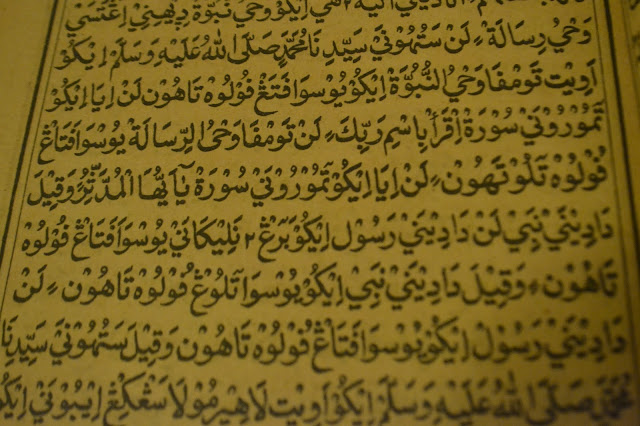 وَحْيُ رِسَالَةْ ، لَنْ سَتُهُوْنَيْ سَيِّدِنَا مُحَمَّدٍ صَلَّى اللهُ عَلَيْهِ وَسَلَّمَ اِيْكُوْ
اَوِيْتْ تَوْمَفَا وَحْيُ النُّبُوَّةْ اِيْكُوْ يُوْسْوَا فَتَڠْ فُوْلُوْهْ تَاهُوْنْ لَنْ اِيَا اِيْكُوْ
تَمُوْرُوْنَيْ سُوْرَةْ اِقْرَأْ بِاسْمِ رَبِّكَ ، لَنْ تَوْمَفَا وَحْيُ الرِّسَالَةْ يُوْسْوَا فَتَاڠْ
فُوْلُوْهْ تَلُوْ تَهُوْنْ ، لَنْ اِيَا اِيْكُوْ تَمُوْرُوْنَيْ سُوْرَةْ يٰٓاَيُّهَا الْمُدَّثِّرُ وَقِيْلَ
دَادِيْنَيْ نَبِيْ لَنْ دَادِيْنَيْ رَسُوْل اِيْكُوْ بَرَڠْ ٢ نَلِيْكَانَيْ يُوْسْوَا فَتَاڠْ فُوْلُوْهْ
تَاهُوْنْ ، وَقِيْلَ دَادِيْنَيْ نَبِيْ اِيْكُوْ يُوْسْوَا تَلُوْڠْ فُوْلُوْهْ تَاهُوْنْ ، لَنْ
دَادِيْنَيْ رَسُوْل اِيْكُوْ يُوْسْوَا فَتَاڠْ فُوْلُوْهْ تَاهُوْنْ وَقِيْلَ سَتُهُوْنَيْ سَيِّدِنَا
مُحَمَّدٍ صَلَّى اللهُ عَلَيْهِ وَسَلَّمَ اِيْكُوْ اَوِيْتْ لَاهِيْرْ مُوْلَا سَڠْكِڠْ اِيْبُوْنَيْ اِيْكُوْ